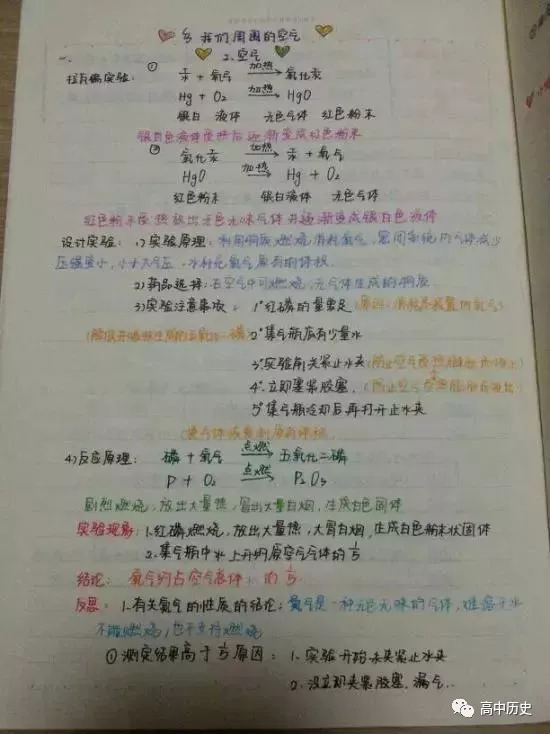 我们周围的空气
2.空气
一.
拉瓦锡实验: ① 汞 + 氧气 加热 氧化汞
Hg + O₂ 加热 HgO
银白 液体 无色气体 红色粉末
银白色液体受热后逐渐变成红色粉末
② 氧化汞 加热 汞 + 氧气
HgO 加热 Hg + O₂
红色粉末 银白液体 无色气体
红色粉末受热放出无色无味气体并逐渐变成银白色液体
设计实验: 1)实验原理: 利用物质燃烧消耗氧气,密闭系统内气体减少
压强变小,小于大气压,水补充氧气原有的体积.
2)药品选择: 在空气中可燃烧,无气体生成的物质
3)实验注意事项: 1°红磷的量要足
2°集气瓶底有少量水
3°实验前夹紧止水夹
4°立即塞紧胶塞.
5°集气瓶冷却后再打开止水夹
使气体恢复到原有体积
4)反应原理: 磷 + 氧气 点燃 五氧化二磷
P + O₂ 点燃 P₂O₅
剧烈燃烧,放出大量热,冒出大量白烟,生成白色固体
实验现象: 1.红磷燃烧,放出大量热,大冒白烟,生成白色粉末状固体
2.集气瓶中水上升约原空气气体的1/5
结论: 氧气约占空气体积的1/5
反思: 1.有关氮气的性质的结论: 氮气是一种无色无味的气体,难溶于水
不能燃烧,也不支持燃烧
① 测定结果高于1/5原因: 1.实验开始未夹紧止水夹
2.没立即夹紧胶塞,漏气...
高中历史